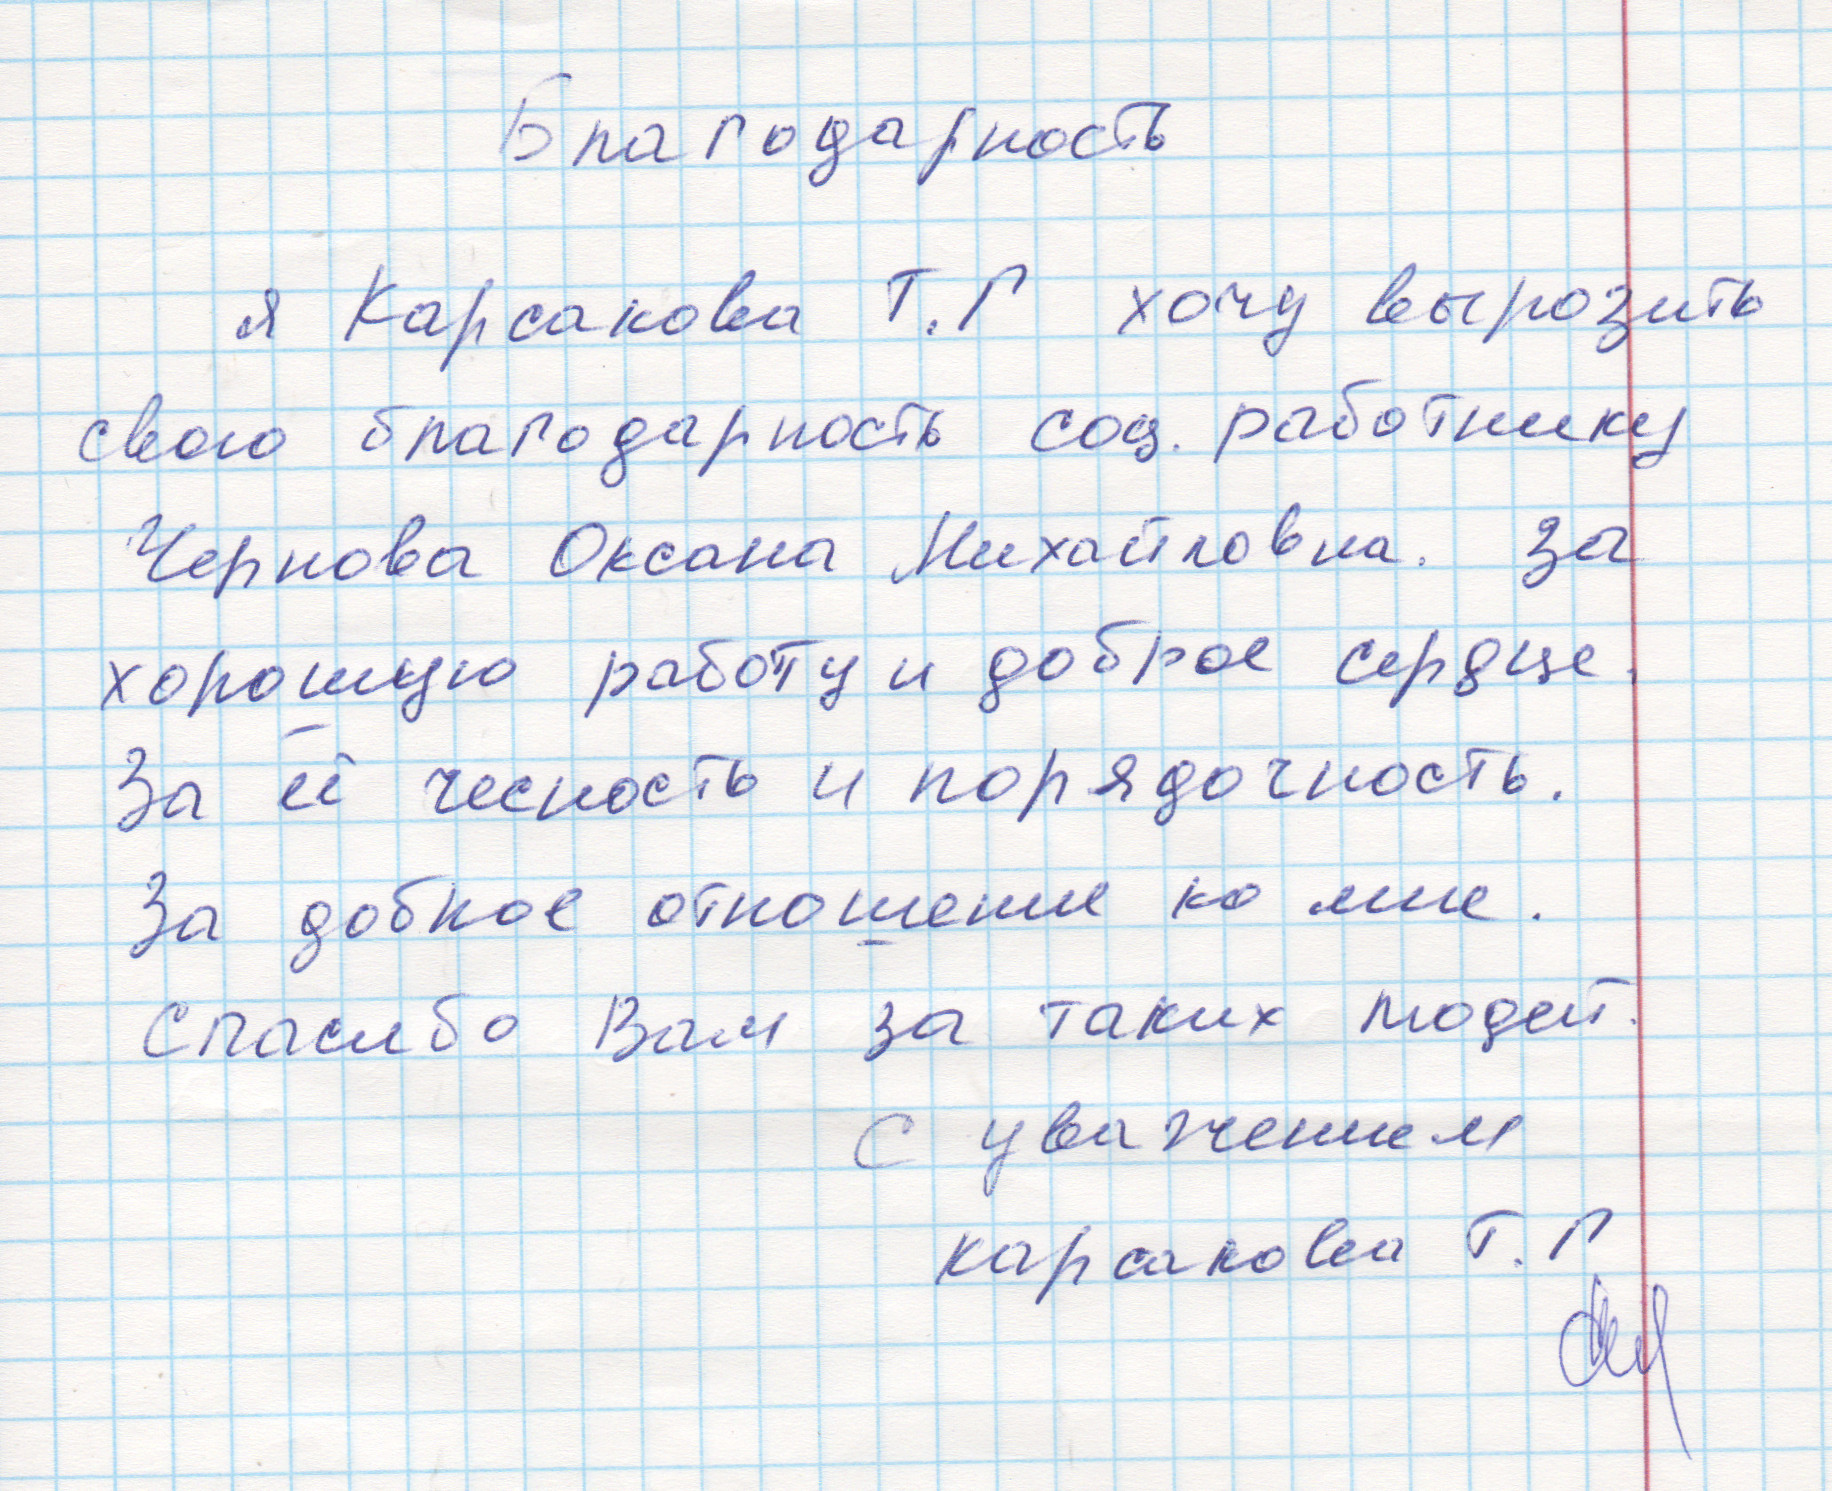 Благодарность
я Карсакова Т.Г хочу вырозить
свою благодарность соц. работнику
Чернова Оксана Михайловна. За
хорошую работу и доброе сердце.
За её чесность и порядочность.
За добное отношение ко мне.
Спасибо Вам за таких людей.
С уважением
Карсакова Т.Г